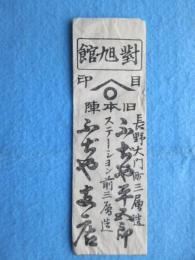 對旭館
目印
旧本陣
長野大門町三層造
ふぢや平五郎
ステーション前三層造
ふぢや支店